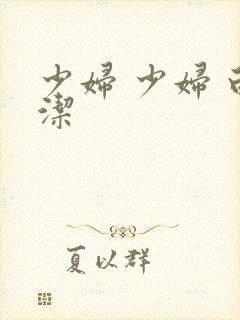 少婦 少婦
潔
夏以群